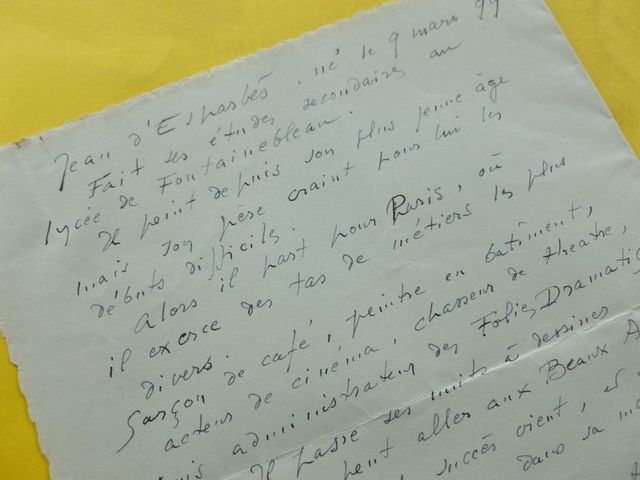 Jean d'Esparbès. né le 9 mars 99
Fait ses études secondaires au
lycée de Fontainebleau.
Il peint depuis son plus jeune âge
mais son père craint pour lui les
débuts difficiles.
Alors il part pour Paris, où
il exerce des tas de métiers les plus
divers.
Garçon de café, peintre en batîment,
acteur de cinéma, chasseur de theatre,
puis administrateur des Folies Dramatiq
Il passe ses nuits à dessiner
peut aller aux Beaux A
succès vient, et
dans sa